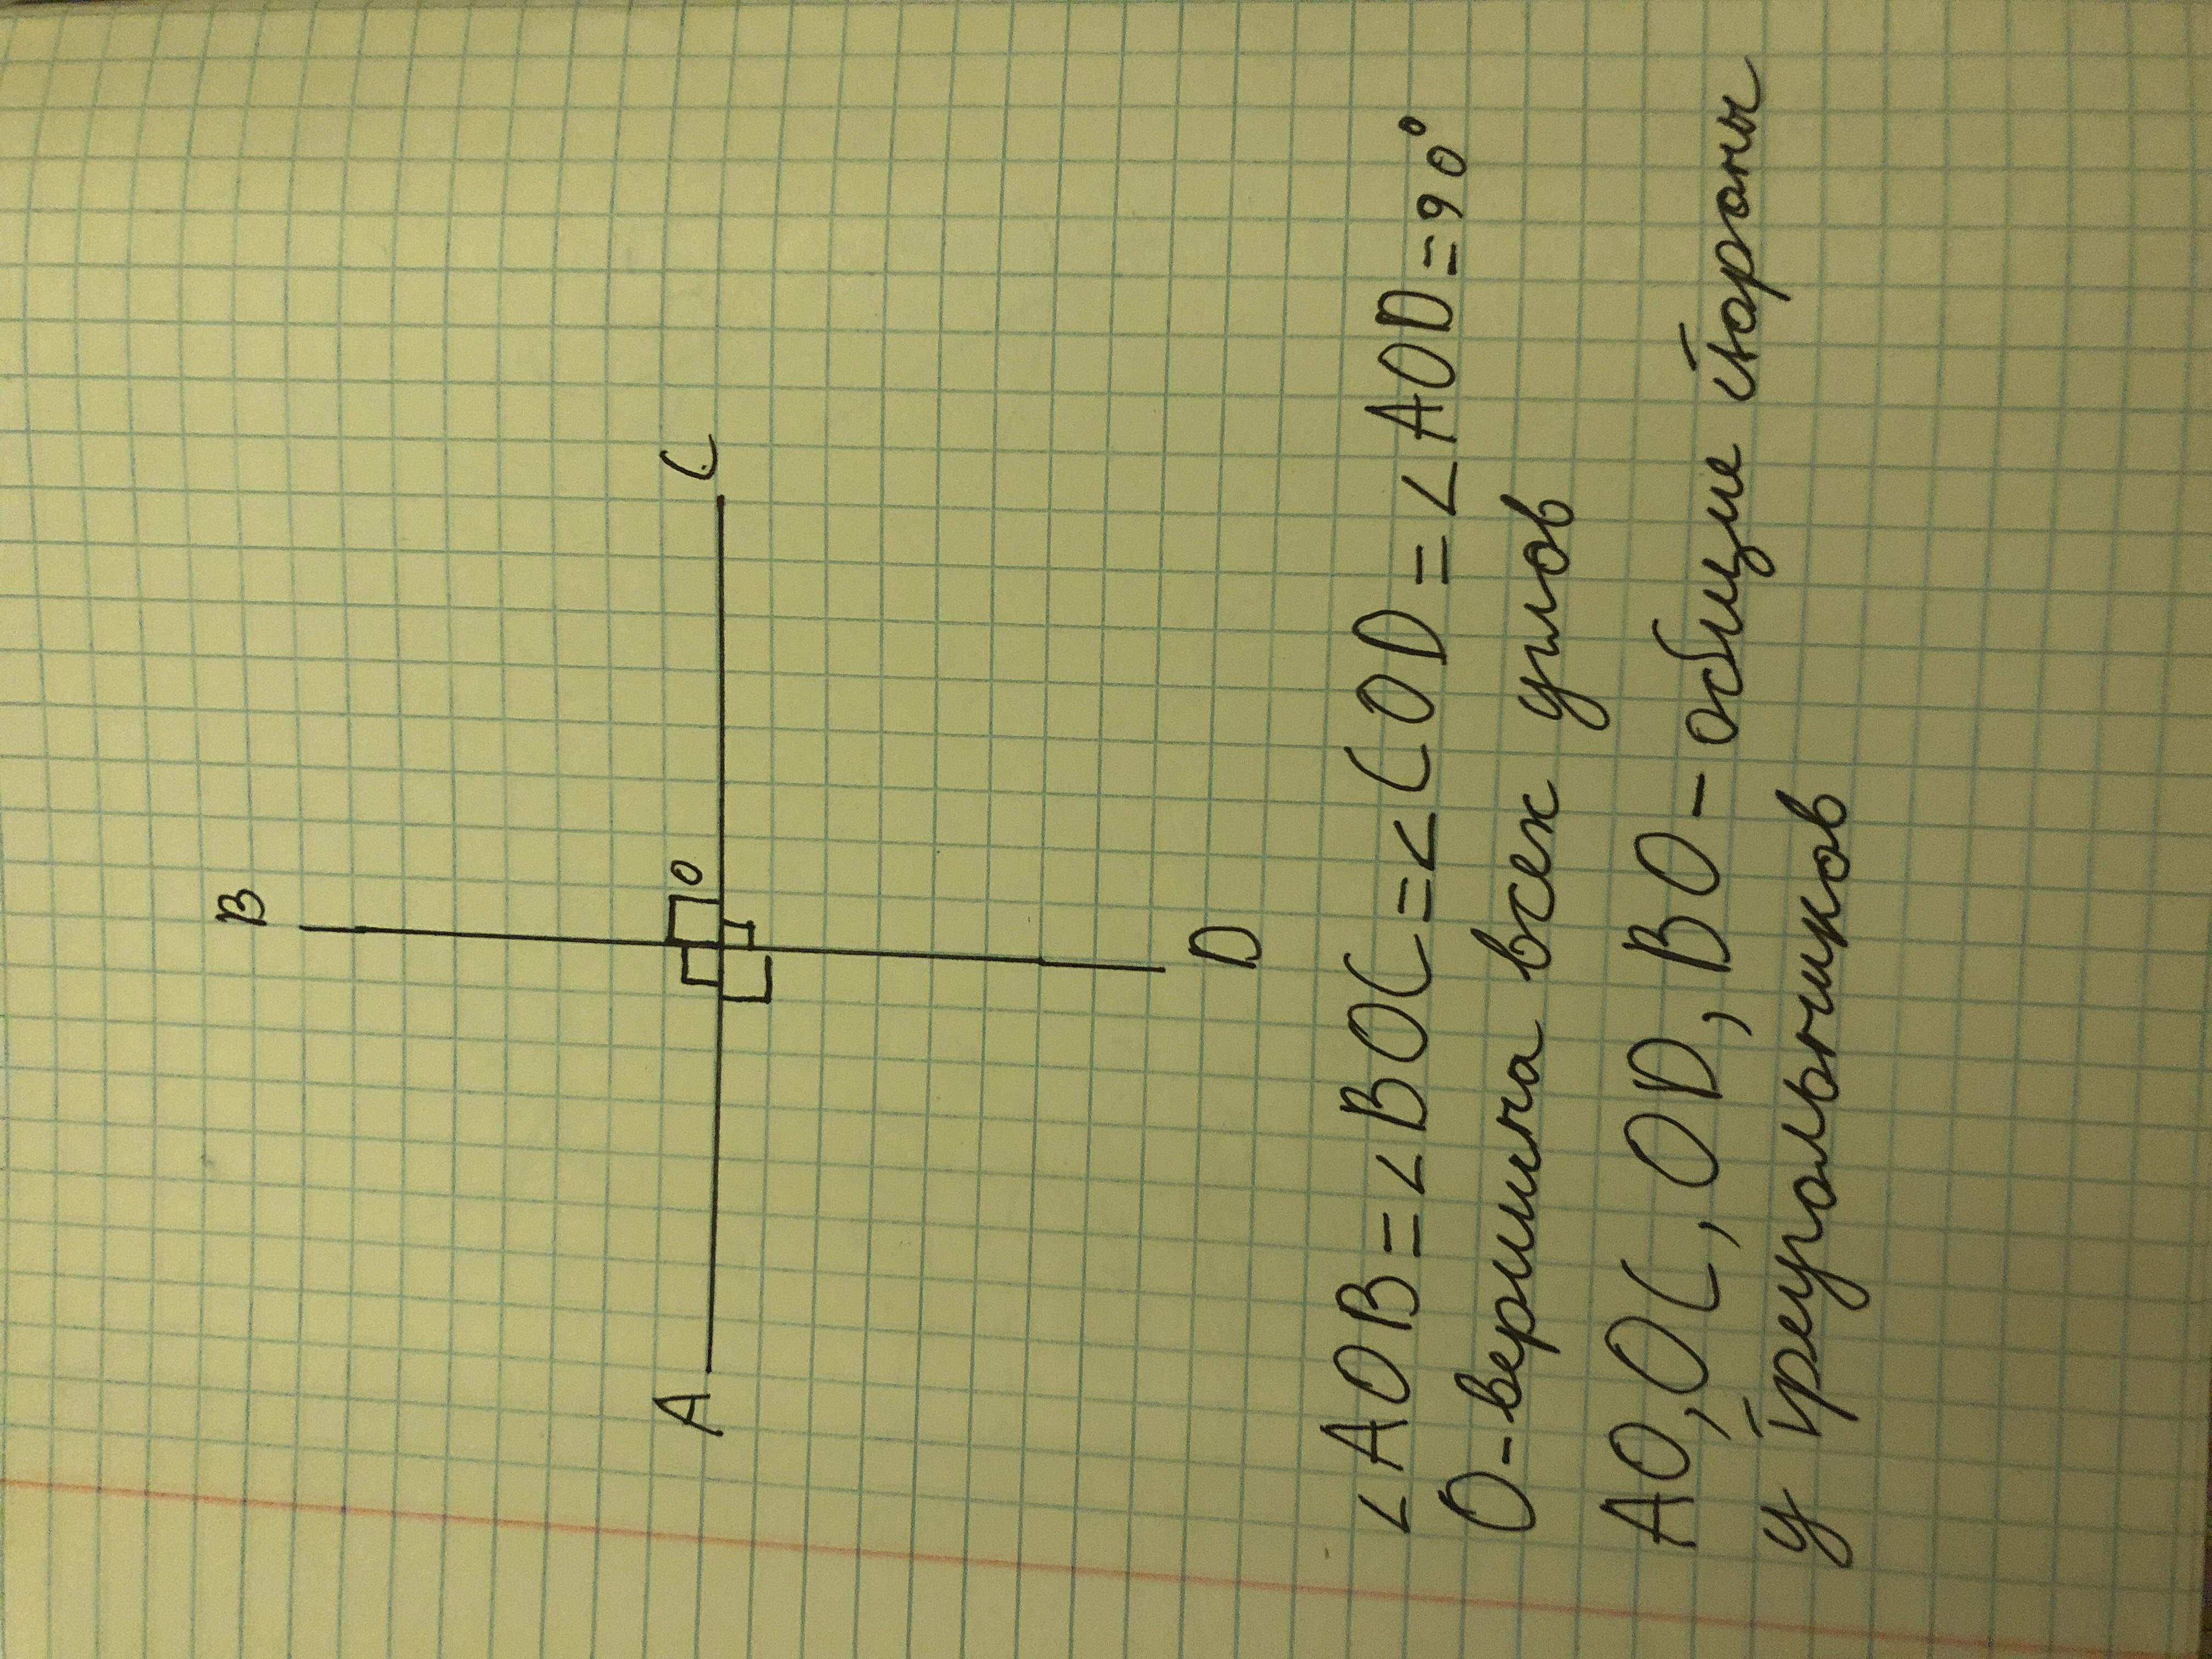 B
A
O
C
D
∠AOB=∠BOC=∠COD=∠AOD=90°
О-вершина всех углов
AO,OC,OD,BO-общие стороны
у треугольников